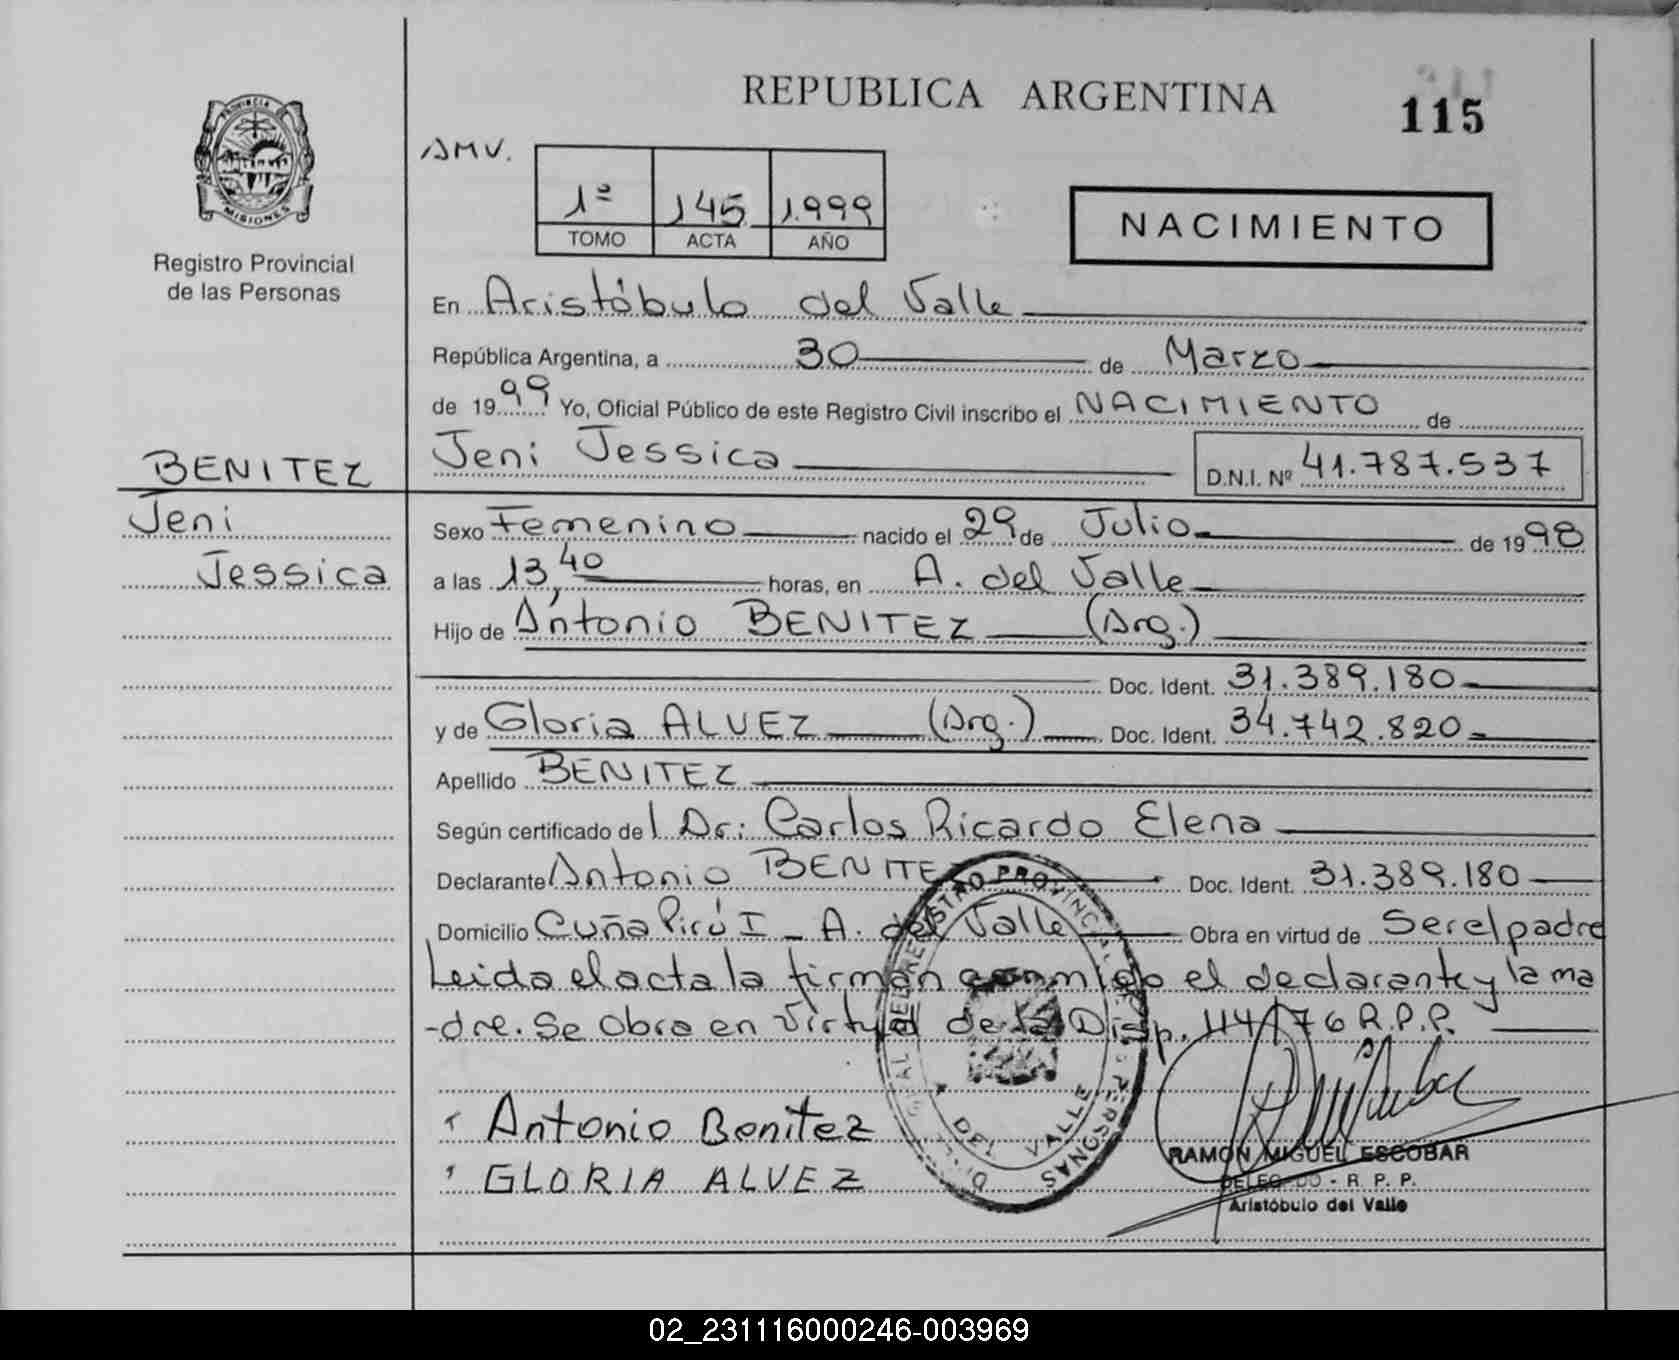 REPUBLICA ARGENTINA
115
PROVINCIA
MISIONES
Registro Provincial
de las Personas
AMV.
1º 145 1.999
TOMO ACTA AÑO
NACIMIENTO
En Aristóbulo del Valle
República Argentina, a 30 de Marzo
de 1999 Yo, Oficial Público de este Registro Civil inscribo el NACIMIENTO de
Jeni Jessica D.N.I. Nº 41.787.537
BENITEZ
Jeni
Jessica
Sexo Femenino nacido el 29 de Julio de 1998
a las 13,40 horas, en A. del Valle
Hijo de Antonio BENITEZ (Arg.)
Doc. Ident. 31.389.180
y de Gloria ALVEZ (Arg.) Doc. Ident. 34.742.820
Apellido BENITEZ
Según certificado del Dr: Carlos Ricardo Elena
Declarante Antonio BENITEZ Doc. Ident. 31.389.180
Domicilio Cuña Pirú I - A. del Valle Obra en virtud de Ser el padre
Leida el acta la firman conmigo el declarante y la ma
-dre. Se Obra en Virtud de la Disp. 114/76 R.P.P.
Antonio Benitez
GLORIA ALVEZ
REGISTRO PROVINCIAL
DEL VALLE
PERSONAS
RAMON MIGUEL ESCOBAR
DELEGADO - R. P. P.
Aristóbulo del Valle
02_231116000246-003969